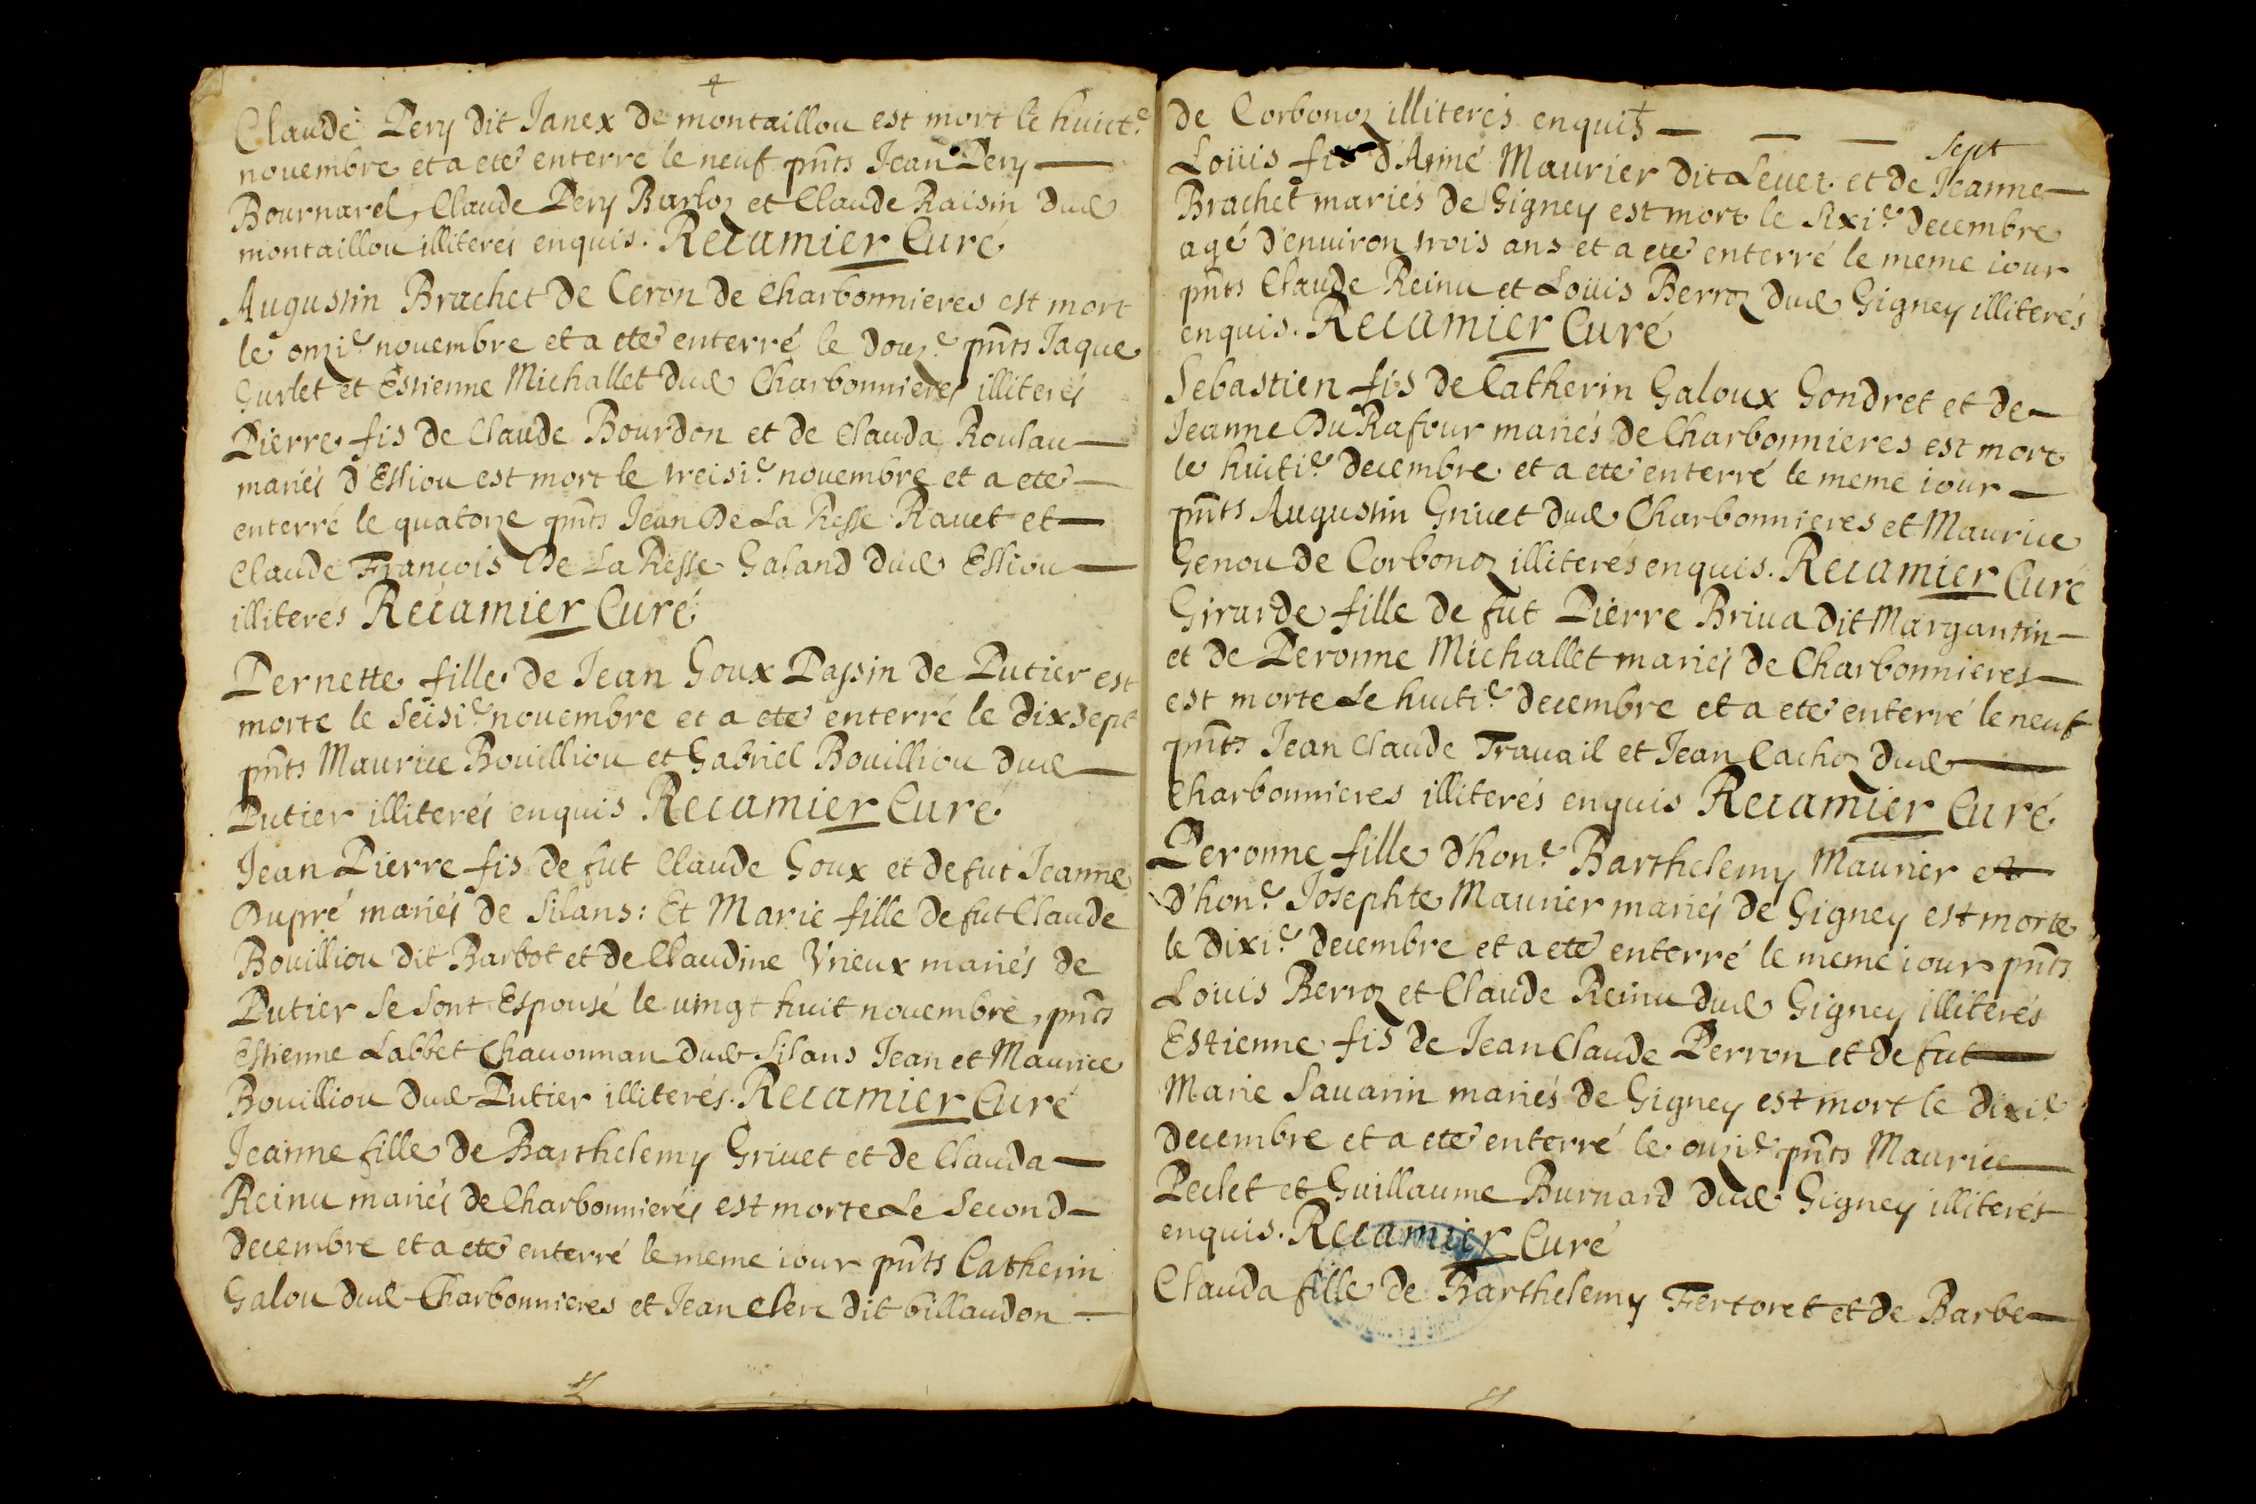 Claude Pery dit Janex de montaillou est mort le huict.e
novembre et a eté enterré le neuf pñts Jean Pery
Bournarel, Claude Pery Barloz et Claude Raisin dud
montaillou illiterés enquis. Recamier Curé
Augustin Brachet de Ceron de Charbonnieres est mort
le onzi.e novembre et a eté enterré le douz.e pñts Jaque
Gurlet et Estienne Michallet dud Charbonnieres illiterés
Pierre fis de Claude Bourdon et de Clauda Roulau
mariés d'Essiou est mort le treisi.e novembre et a eté
enterré le quatorze pñts Jean De La Resse Rauet et
Claude François De La Resse Galand dud Essiou
illiterés Recamier Curé
Pernette fille de Jean Goux Passin de Putier est
morte le seisi.e novembre et a eté enterré le dixsept
pñts Maurice Bouilliou et Gabriel Bouilliou dud
Putier illiterés enquis Recamier Curé
Jean Pierre fis de fut Claude Goux et de fut Jeanne
Dupré mariés de Silans: Et Marie fille de fut Claude
Bouilliou dit Barbot et de Claudine Vrieux mariés de
Putier se sont Espousé le vingt huit novembre, pñts
Estienne Labbet Chauonnau dud Silans Jean et Maurice
Bouilliou dud Putier illiterés. Recamier Curé
Jeanne fille de Barthelemy Griuet et de Clauda
Reinu mariés de Charbonnierés est morte Le second
decembre et a eté enterré le meme iour pñts Catherin
Galou dud Charbonnieres et Jean Clerc dit billaudon
de Corbonoz illiterés enquis
sept
Loüis fis d'Aimé Maurier dit Leuet et de Jeanne
Brachet mariés de Gigney est mort le sixi.e decembre
agé d'enuiron trois ans et a eté enterré le meme iour
pñts Claude Reinu et Loüis Berroz dud Gigney illiterés
enquis. Recamier Curé
Sebastien fis de Catherin Galoux Gondret et de
Jeanne Du Rafour mariés de Charbonnieres est mort
le huiti.e decembre et a eté enterré le meme iour
pñts Augustin Griuet dud Charbonnieres et Maurice
Genou de Corbonoz illiterés enquis. Recamier Curé
Girarde fille de fut Pierre Briua dit Margantin
et de Peronne Michallet mariés de Charbonnieres
est morte Le huiti.e decembre et a eté enterré le neuf
pñts Jean Claude Trauail et Jean Cachoz dud
Charbonnieres illiterés enquis Recamier Curé
Peronne fille d'hon.e Barthelemy Maurier et
d'hon.e Josephte Maurier mariés de Gigney est morte
le dixi.e decembre et a eté enterré le meme iour pñts
Louis Berroz et Claude Reinu dud Gigney illiterés
Estienne fis de Jean Claude Perron et de fut
Marie Sauarin mariés de Gigney est mort le dixi.e
decembre et a eté enterré le onzi.e pñts Maurice
Peclet et Guillaume Burnard dud Gigney illiterés
enquis. Recamier Curé
Clauda fille de Barthelemy Fertoret et de Barbe